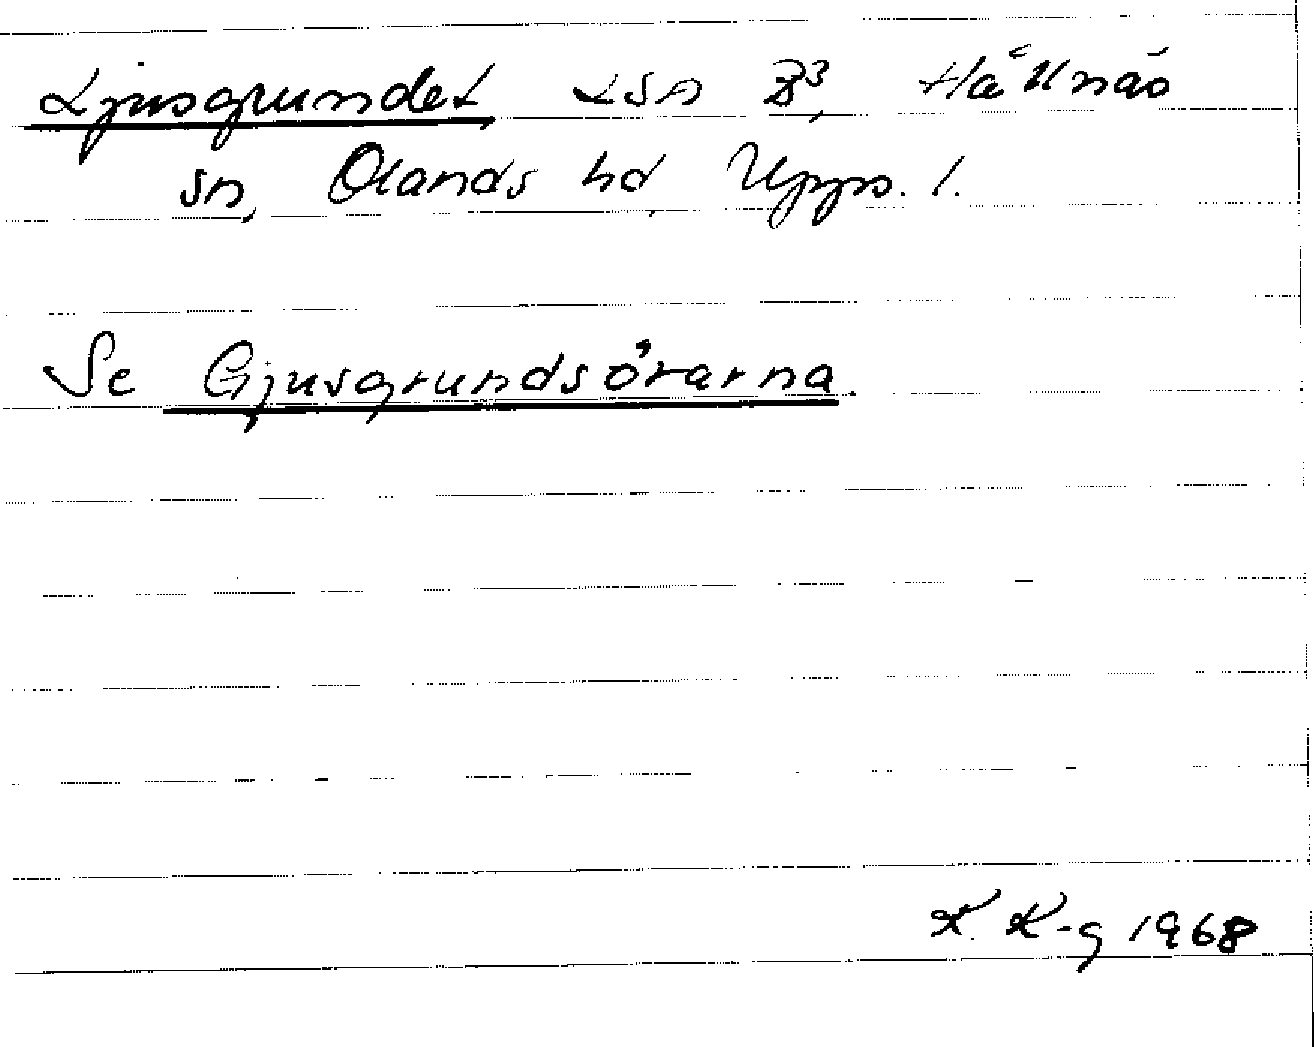 Ljusgrundet LSn B³, Håknäs
sn, Olands hd, Upps. l.
Se Gjusgrundsörarna.
K. K-g 1968